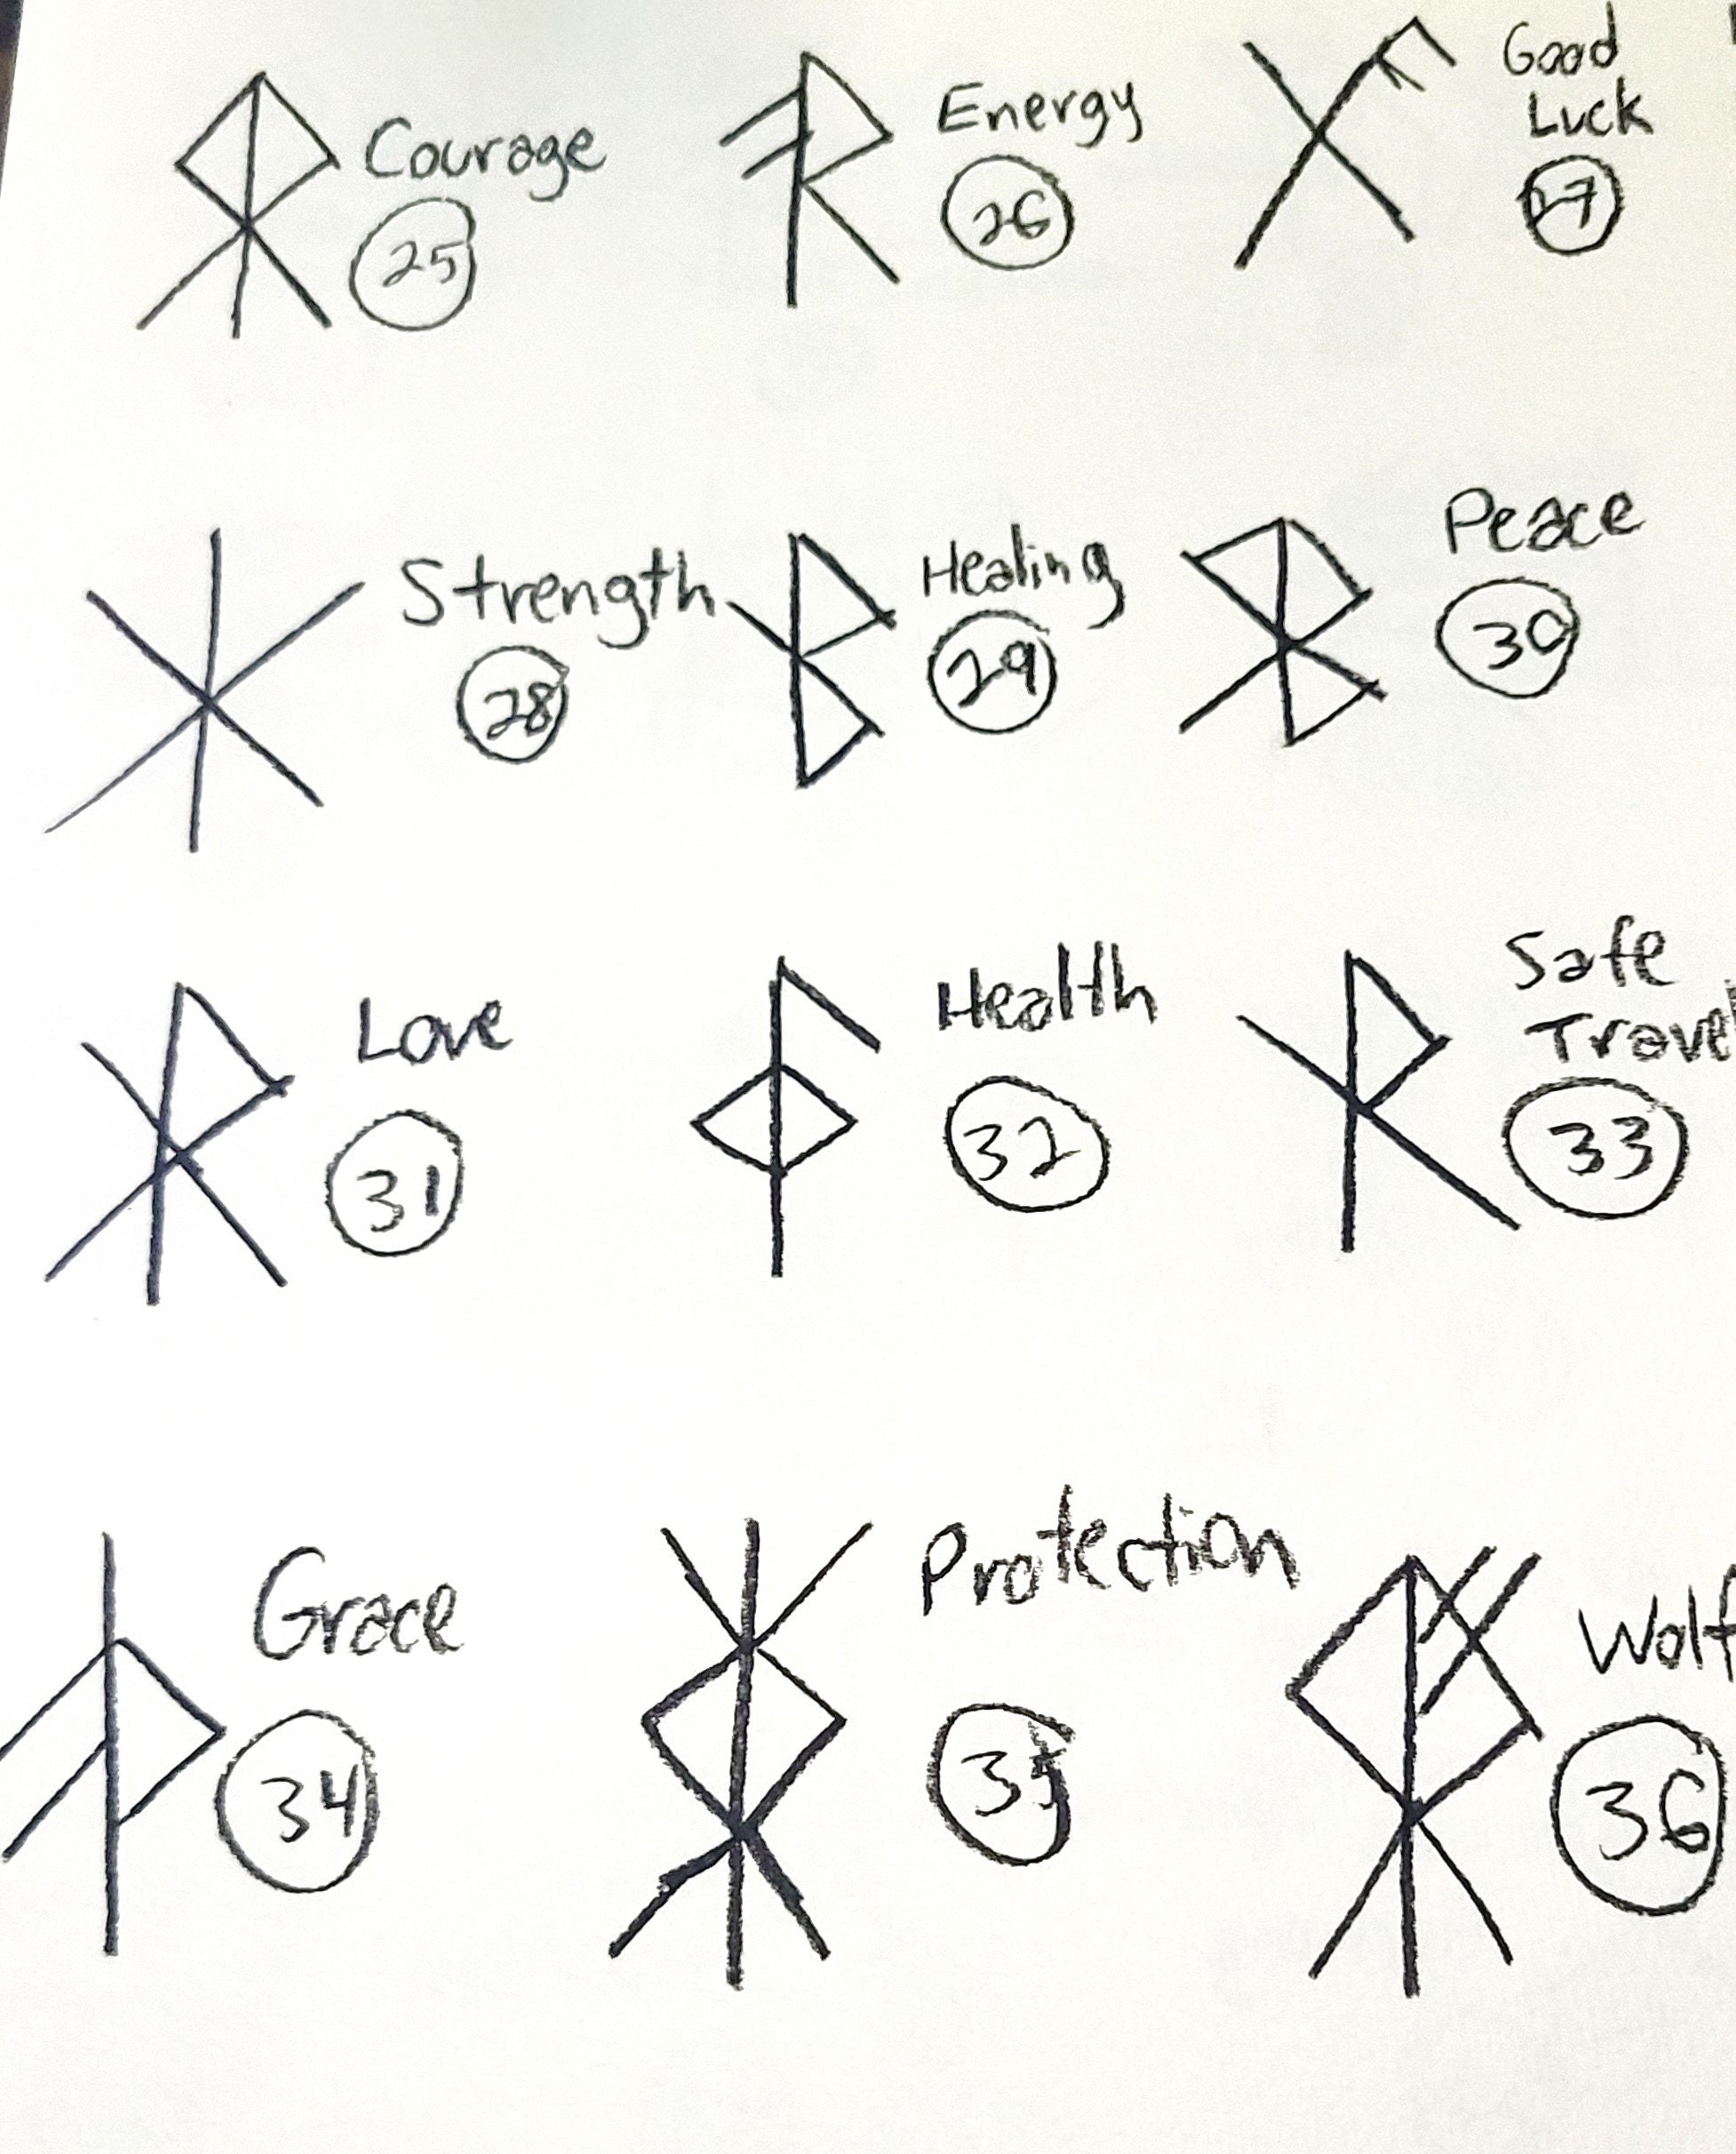 Courage
25
Energy
26
Good
Luck
27
Strength
28
Healing
29
Peace
30
Love
31
Health
32
Safe
Travel
33
Grace
34
Protection
35
Wolf
36